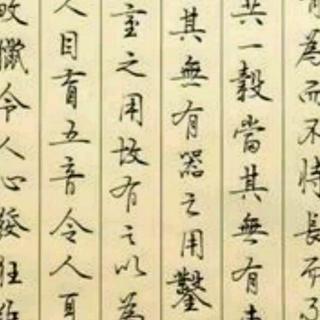 為而不恃長而不
共一轂當其無有車
其無有器之用鑿
室之用故有之以為
人目盲五音令人耳
畋獵令人心發狂難